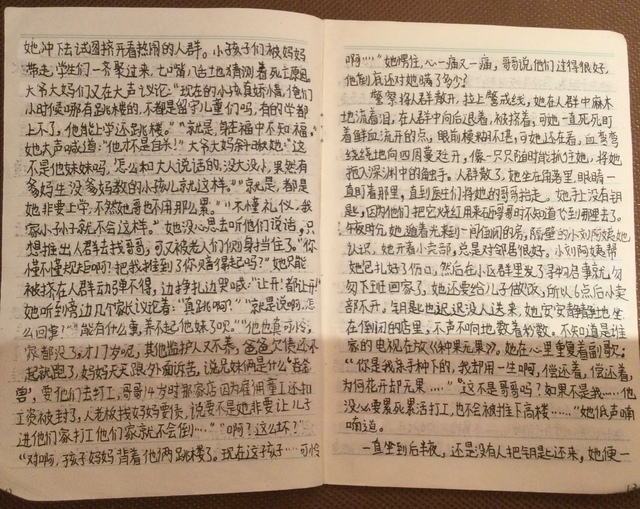 她冲下去试图挤开看热闹的人群。小孩子们被妈妈
带走，学生们一齐聚过来，七嘴八舌地猜测着死亡原因。
大爷大妈们又在大声议论："现在的小孩真娇气，俺们
小时候哪有跳楼的，不都是留守儿童们吗，有的学都
上不了，他能上学还跳楼。""就是，身在福中不知福。"
她大声喊道："他才不是自杀！"大爷大妈斜睨她："这
不是他妹妹吗，怎么和大人说话的，没大没小，果然有
爹妈生没爹妈教的小孩儿就这样。""就是，都是
她非要上学，不然她哥也不用那么累。""不懂礼仪，我
家小孙子就不会这样。"她没心思去听他们说话，只
想推出人群去找哥哥，可又被老人们侧身挡住了。"你
懂不懂规矩啊？把我推到了你赔得起吗？"她只能
被挤在人群里动弹不得，边挣扎边哭喊："让开！都让开！"
她听到旁边几个家长议论着："真跳啊？""就是说啊，怎
么回事？""能有什么事，养不起他妹了呗。""他也真可怜，
家都没了，才17岁呢，其他监护人又不养，爸爸欠债还不
起就跑了，妈妈天天跟外面诉苦，说兄妹俩是什么"吞金
兽"，要他们去打工，哥哥14岁时那家店因为雇用童工还扣
工资被封了，人老板找好妈要债，说要不是她非要让儿子
进他们家打工他们家就不会倒……""啊？这么坏？"
"对啊，孩子妈妈背着他俩跳楼了。现在这孩子……可怜
啊……"她愣住，心一痛又一痛，哥哥说他们过得很好，
他到底还对她瞒了多少？
警察将人群散开，拉上警戒线，她在人群中麻木
地流着泪，在人群中向后退着，被挤着，可她一直死死盯
着鲜血流开的点，眼前模糊不堪，可她还在看，血弯弯
绕绕地向四周蔓延开，像一只只随时能抓住她，将她
拖入深渊中的触手。人群散了，她坐在角落里，眼睛一
直盯着那里，直到医生们将她的哥哥抬走。她手上没有钥
匙，因为他们把它烧红用来砸哥哥时不知道弄到哪里去了。
午夜时分，她追着光来到一间便利店，隔壁的小刘阿姨她
认识，她开着小卖部，总是对邻居很好。小刘阿姨帮
她包扎好了伤口，然后在小区群里发了寻物启事就匆
匆下班回家了，她还要给儿子做饭，所以6点后小卖
部不开。钥匙也迟迟没人送来，她安安静静地坐
在倒闭的店里，不声不响地数着秒数。不知道是谁
家的电视在放《种果元果》。她在心里重复着副歌：
"你是我亲手种下的，我却用一生啊，偿还着，偿还着，
为何花开却无果……""这不是哥哥吗？如果不是我……他
没必要累死累活打工，也不会被推下高楼……"她低声喃
喃道。
一直坐到后半夜，还是没有人把钥匙还来，她便一